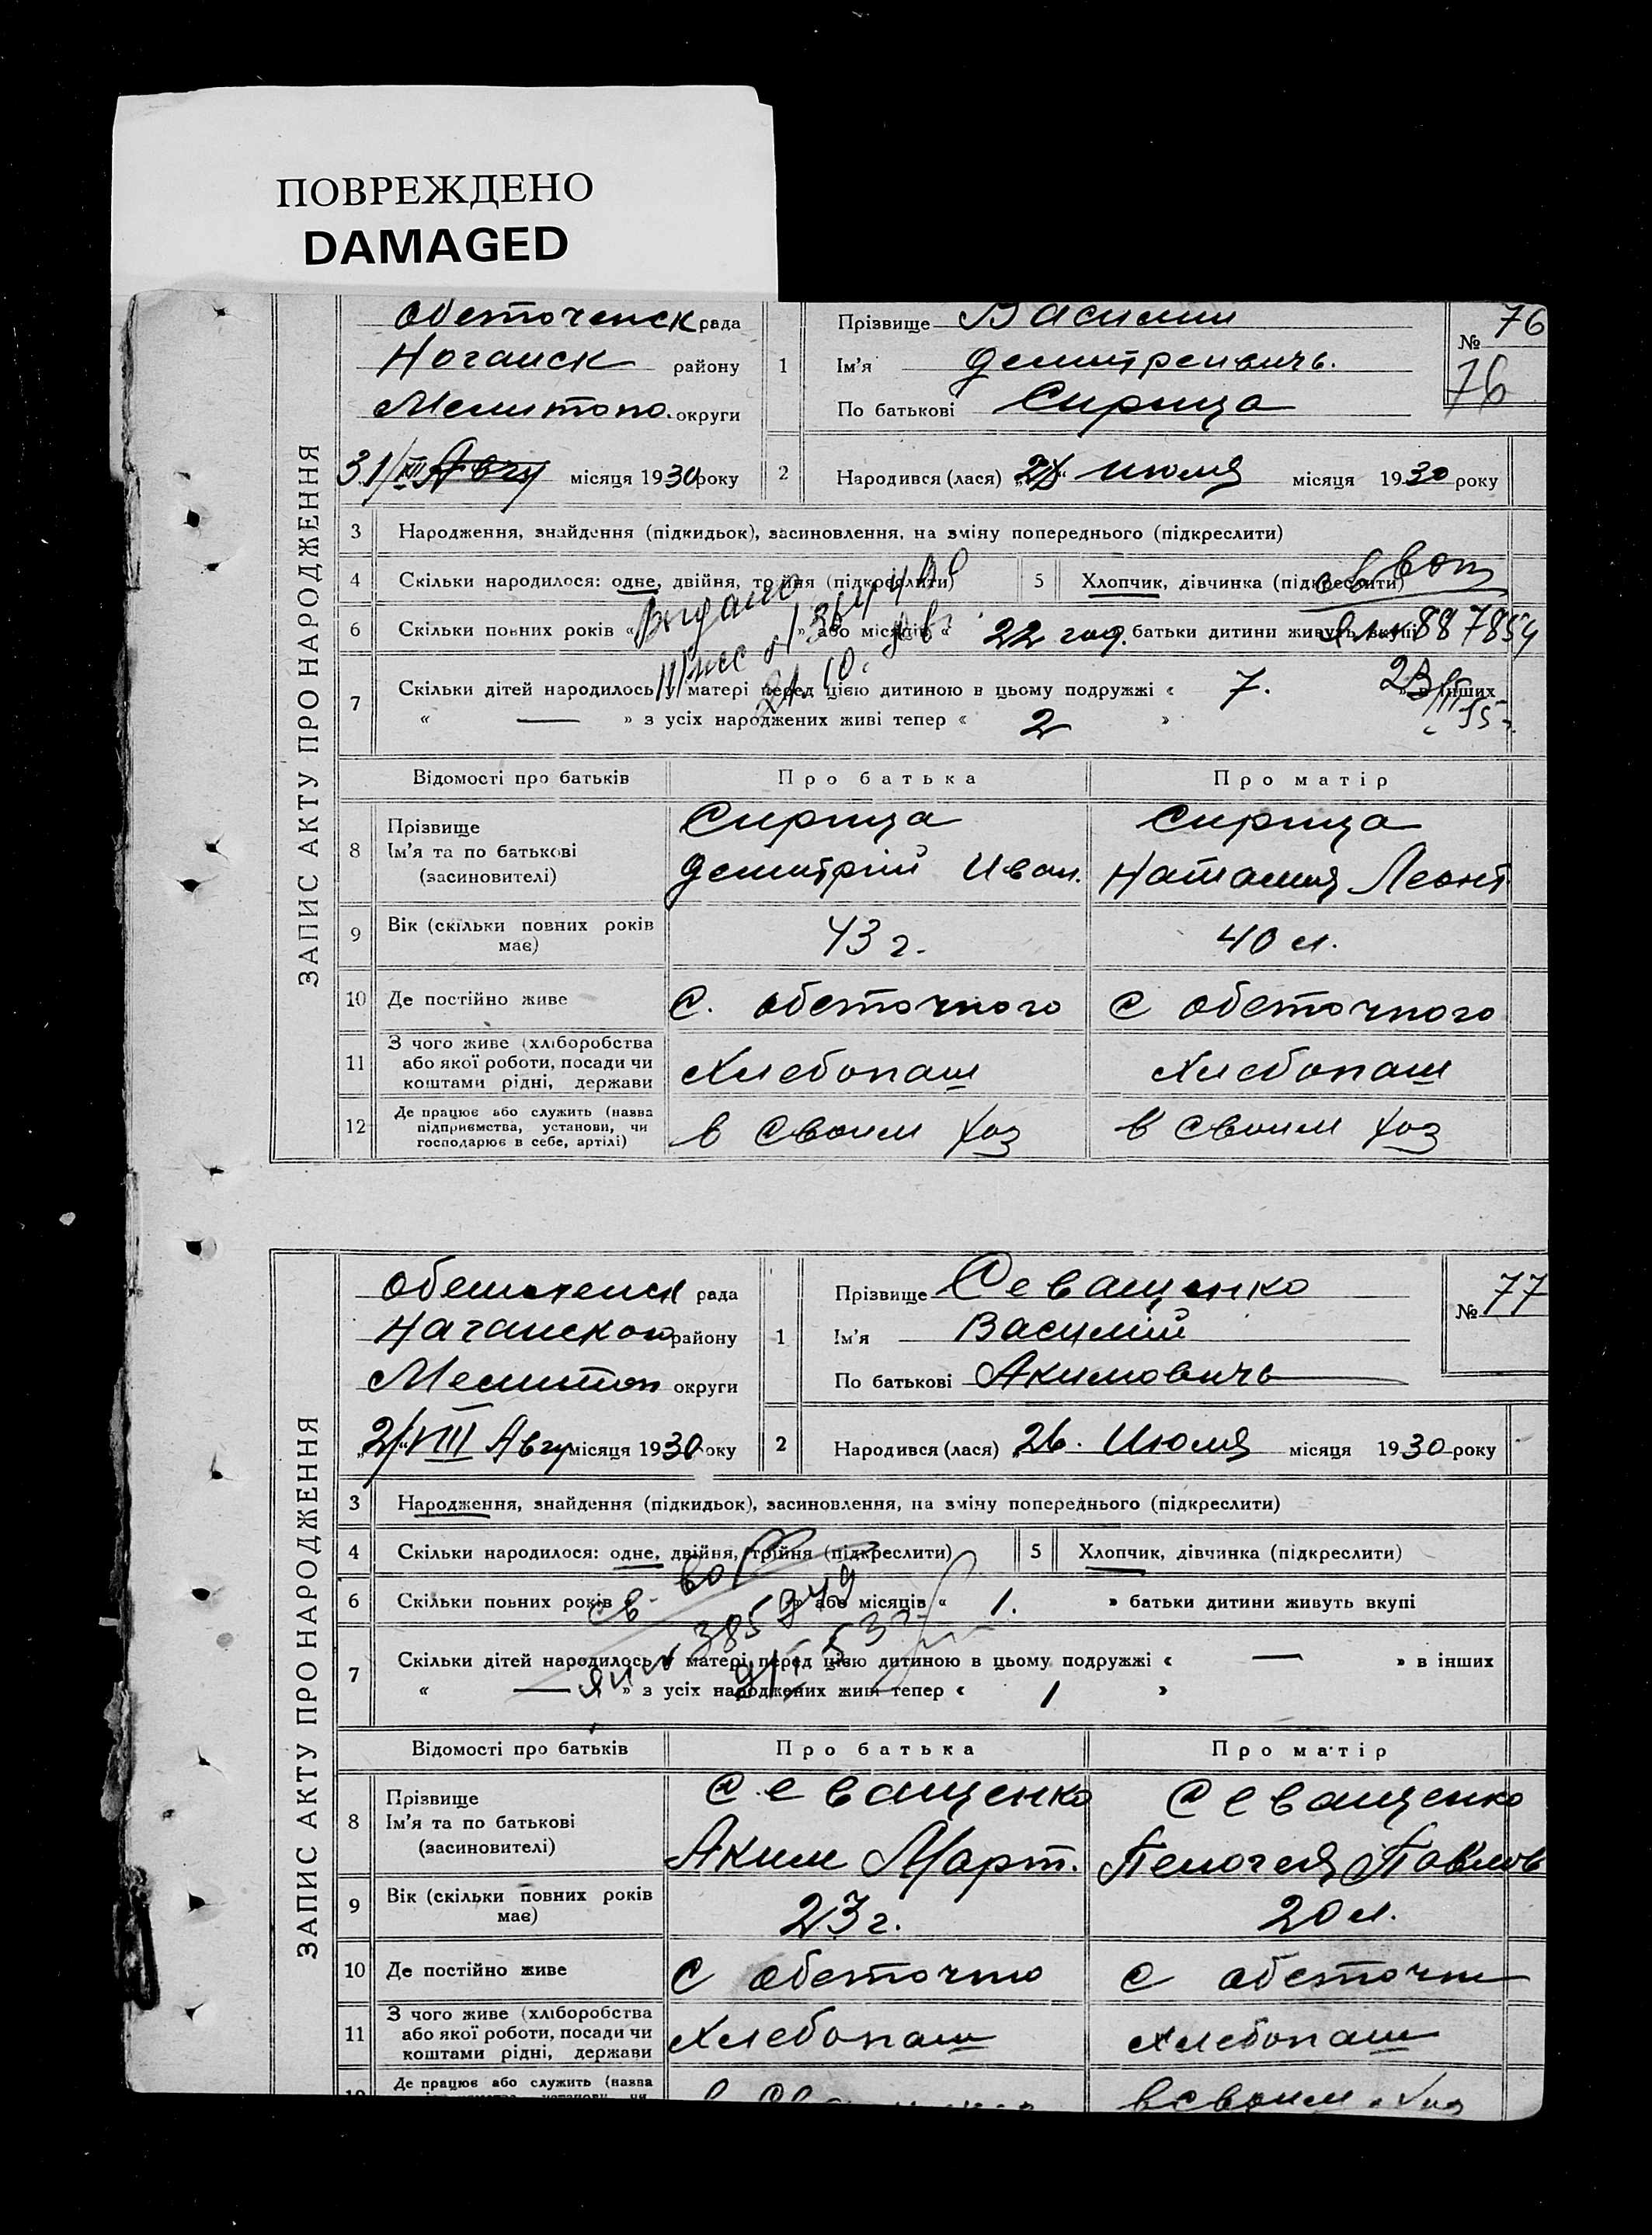 ПОВРЕЖДЕНО
DAMAGED
ЗАПИС АКТУ ПРО НАРОДЖЕННЯ
Обеточенск рада
Ногаиск району
Мелитопо. округи
31/XII Авгу місяця 1930 року
1 Прізвище Василии
Ім'я Демитреивичь.
По батькові Сирица
№ 76
76
2 Народився (лася) июля місяця 1930 року
3 Народження, знайдення (підкидьок), засиновлення, на зміну попереднього (підкреслити)
4 Скільки народилося: одне, двійня, тройня (підкреслити)
5 Хлопчик, дівчинка (підкреслити)
6 Скільки повних років « » або місяців « 22 год. батьки дитини живуть вкупі
Выдано
887854
7 Скільки дітей народилось у матері перед цією дитиною в цьому подружжі « 7. » в інших
« — » з усіх народжених живі тепер « 2 »
Відомості про батьків Про батька Про матір
8 Прізвище Ім'я та по батькові (засиновителі)
Сирица Сирица
Демитрий Иван. Наталия Леонт
9 Вік (скільки повних років має) 43 г. 40 л.
10 Де постійно живе С. Обеточного С Обеточного
11 З чого живе (хліборобства або якої роботи, посади чи коштами рідні, держави Хлебопаш Хлебопаш
12 Де працює або служить (назва підприємства, установи, чи господарює в себе, артілі) в своим хоз в своим хоз
ЗАПИС АКТУ ПРО НАРОДЖЕННЯ
Обеточенск рада
Нагаиского району
Мелитоп округи
„2/„VIII Авгу місяця 1930 року
1 Прізвище Севащенко
Ім'я Василий
По батькові Акимовичь
№ 77
2 Народився (лася) „26. Июля місяця 1930 року
3 Народження, знайдення (підкидьок), засиновлення, на зміну попереднього (підкреслити)
4 Скільки народилося: одне, двійня, трійня (підкреслити)
5 Хлопчик, дівчинка (підкреслити)
6 Скільки повних років « » або місяців « 1. » батьки дитини живуть вкупі
7 Скільки дітей народилось у матері перед цією дитиною в цьому подружжі « — » в інших
« — » з усіх народжених живі тепер « 1 »
Відомості про батьків Про батька Про матір
8 Прізвище Ім'я та по батькові (засиновителі)
Севащенко Севащенко
Аким Март. Пелогея Павлов
9 Вік (скільки повних років має) 23 г. 20 л.
10 Де постійно живе С Обеточно С Обеточн
11 З чого живе (хліборобства або якої роботи, посади чи коштами рідні, держави Хлебопаш Хлебопаш
Де працює або служить (назва
в своим хоз